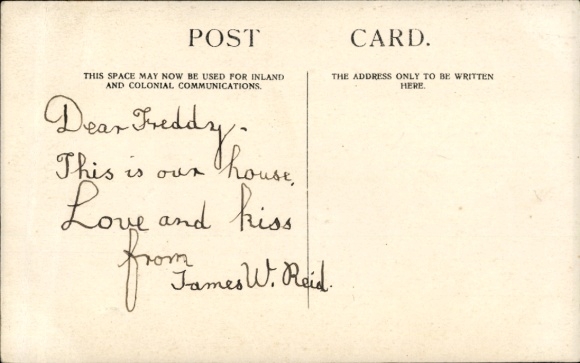 POST CARD.
THIS SPACE MAY NOW BE USED FOR INLAND
AND COLONIAL COMMUNICATIONS.
THE ADDRESS ONLY TO BE WRITTEN
HERE.
Dear Freddy.
This is our house.
Love and kiss
from
James W. Reid.